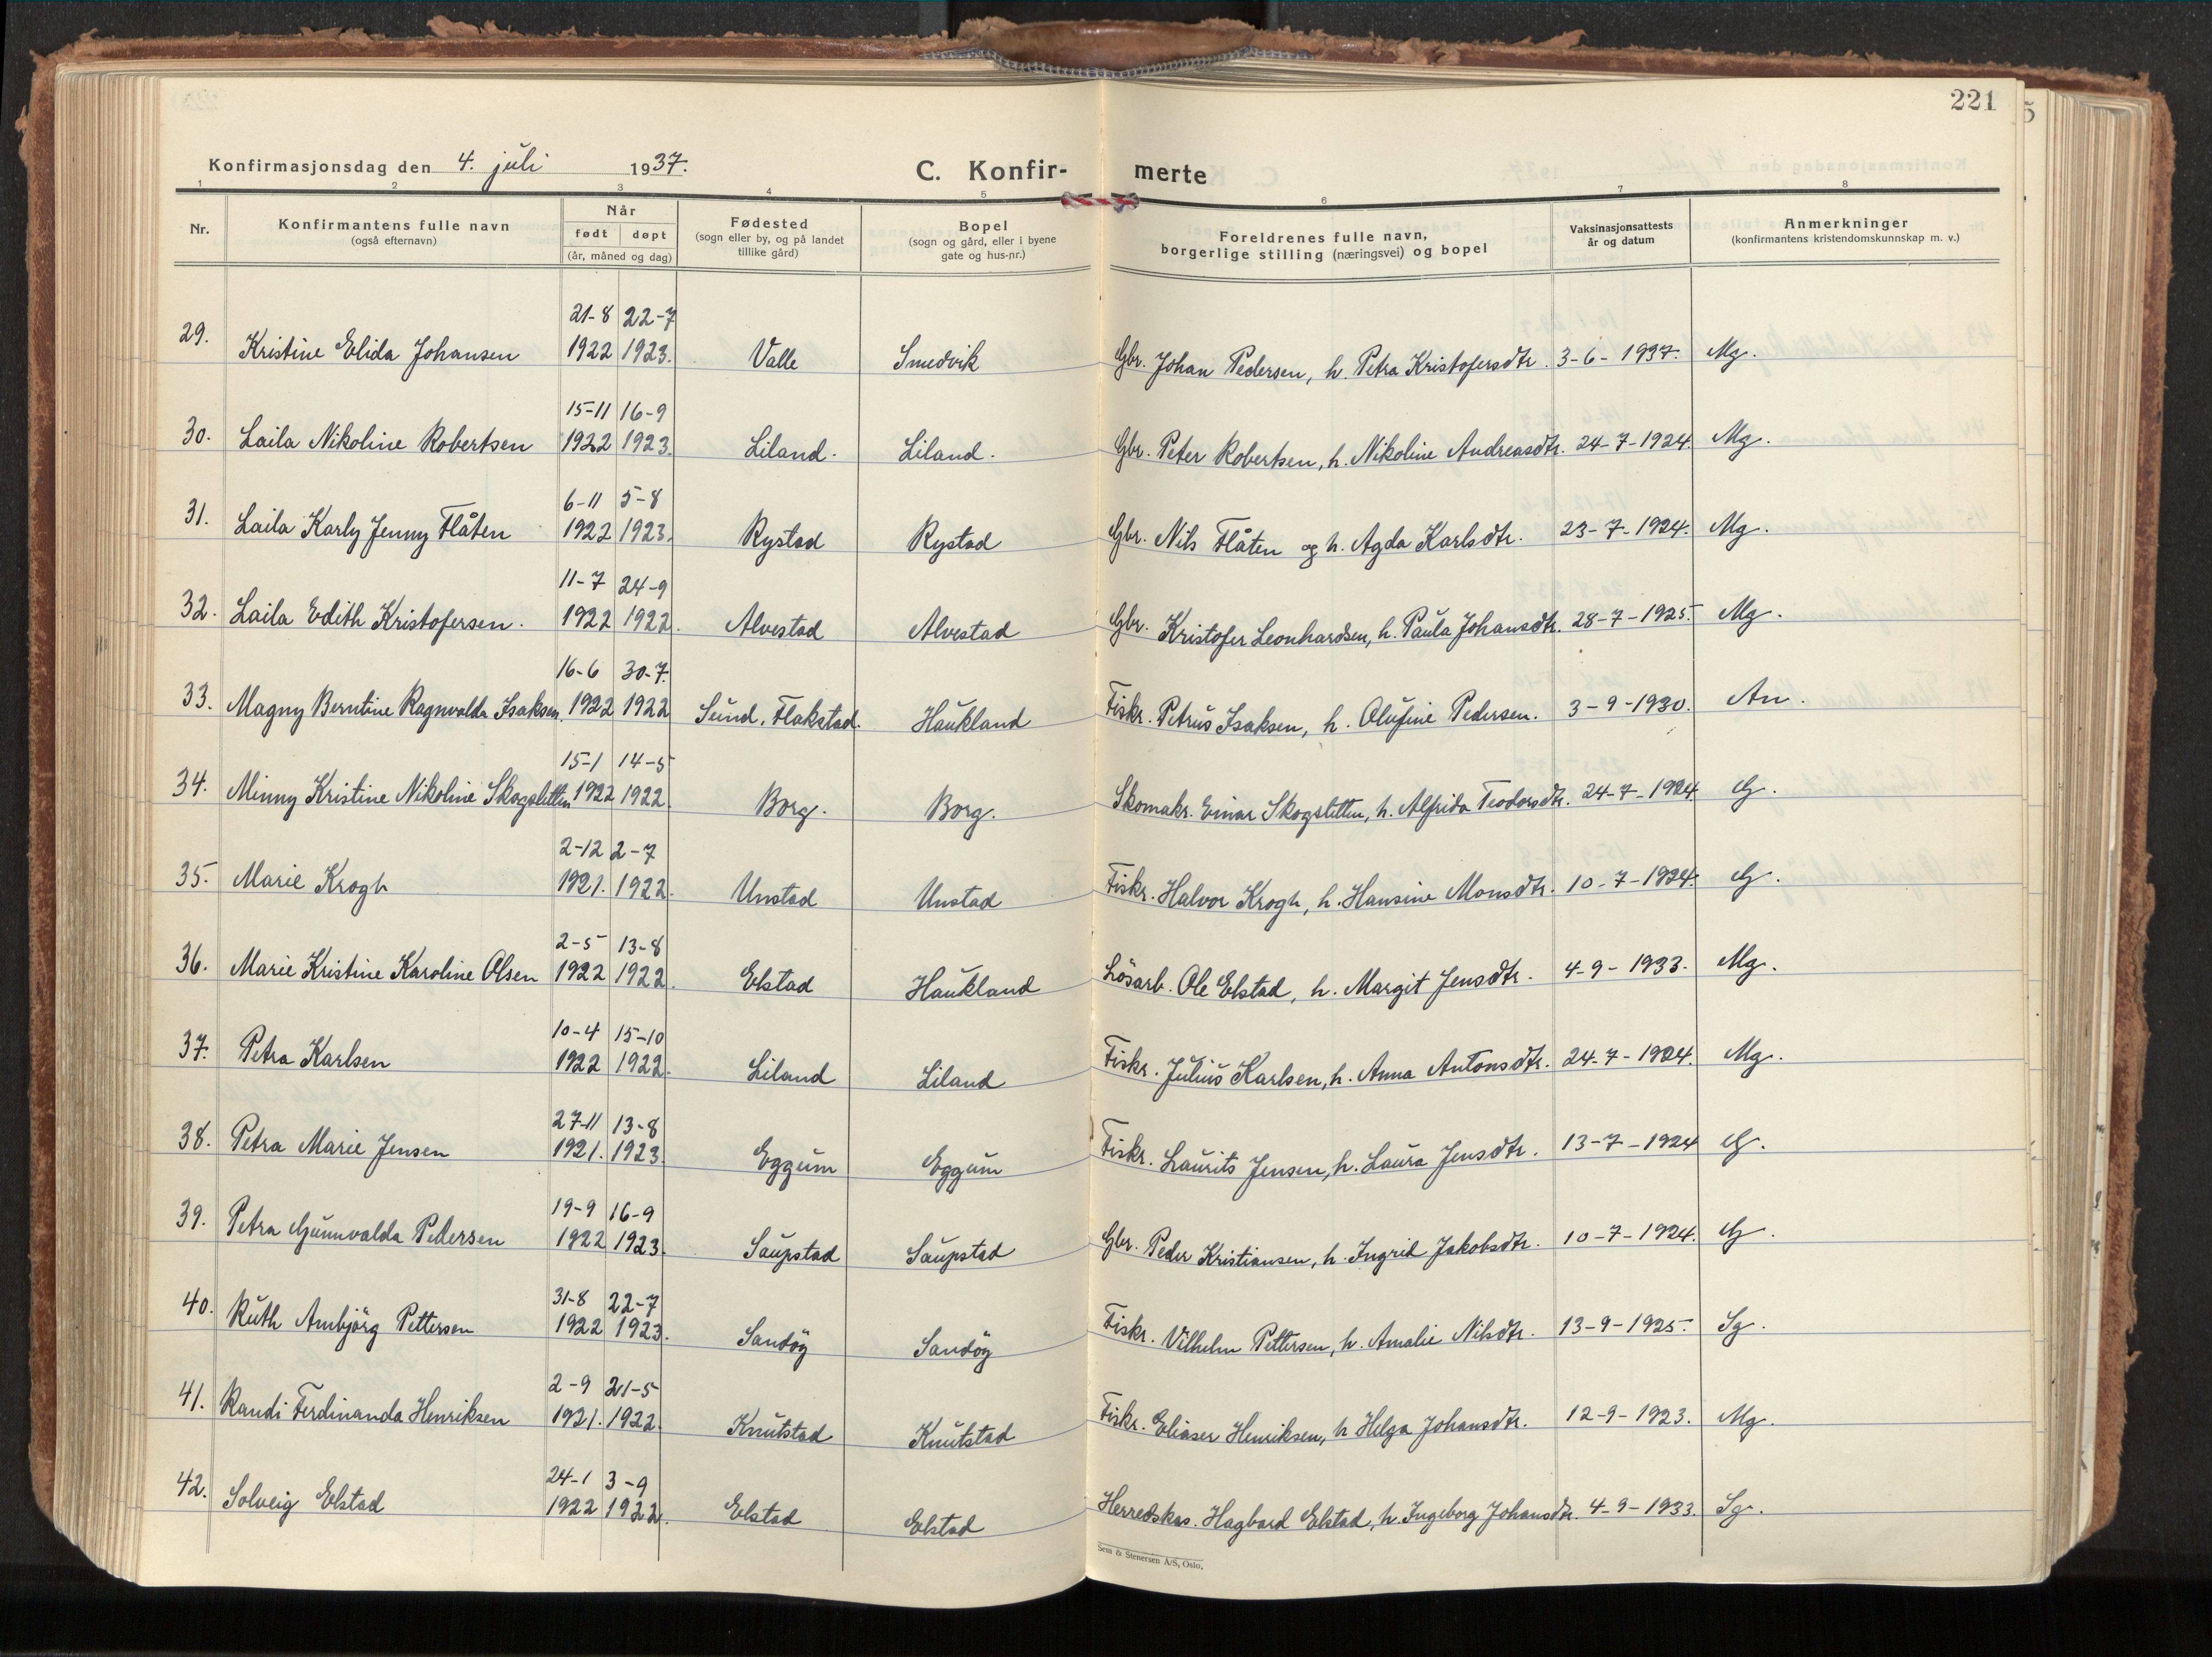 221
Konfirmasjonsdag den 4. juli 1937.
C. Konfir- merte
1 2 3 4 5 6 7 8
Nr.
Konfirmantens fulle navn
(også efternavn)
Når
født døpt
(år, måned og dag)
Fødested
(sogn eller by, og på landet
tillike gård)
Bopel
(sogn og gård, eller i byene
gate og hus-nr.)
Foreldrenes fulle navn,
borgerlige stilling (næringsvei) og bopel
Vaksinasjonsattests
år og datum
Anmerkninger
(konfirmantens kristendomskunnskap m. v.)
21-8 22-7
29. Kristine Elida Johansen 1922 1923. Valle Smedvik Gbr. Johan Pedersen, h. Petra Kristofersdtr. 3-6-1937. Mg.
15-11 16-9
30. Laila Nikoline Robertsen 1922 1923. Liland. Liland. Gbr. Peter Robertsen, h. Nikoline Andreasdtr. 24-7-1924. Mg.
6-11 5-8
31. Laila Karly Jenny Flåten 1922 1923. Rystad Rystad Gbr. Nils Flåten og h. Agda Karlsdtr. 23-7-1924. Mg.
11-7 24-9
32. Laila Edith Kristofersen. 1922 1922. Alvestad Alvestad Gbr. Kristofer Leonhardsen, h. Paula Johansdtr. 28-7-1925. Mg.
16-6 30-7.
33. Magny Berntine Ragnvalda Isaksen. 1922 1922 Sund, Flakstad. Haukland Fiskr. Petrus Isaksen, h. Olufine Pedersen. 3-9-1930. An.
15-1 14-5
34. Minny Kristine Nikoline Skogsletten 1922 1922. Borg. Borg. Skomakr. Einar Skogsletten, h. Alfrida Teodorsdtr. 24-7-1924 G.
2-12 2-7
35. Marie Krogh 1921. 1922. Unstad Unstad Fiskr. Halvor Krogh, h. Hansine Monsdtr. 10-7-1924. G.
2-5 13-8
36. Marie Kristine Karoline Olsen 1922 1922. Elstad Haukland Løsarb. Ole Elstad, h. Margit Jensdtr. 4-9-1933. Mg.
10-4 15-10
37. Petra Karlsen 1922 1922. Liland Liland Fiskr. Julius Karlsen, h. Anna Antonsdtr. 24-7-1924. Mg.
27-11 13-8
38. Petra Marie Jensen 1921. 1923. Eggum Eggum Fiskr. Laurits Jensen, h. Laura Jensdtr. 13-7-1924 G.
19-9 16-9
39. Petra Gunnvalda Pedersen 1922 1923. Saupstad Saupstad Gbr. Peder Kristiansen, h. Ingrid Jakobsdtr. 10-7-1924. G.
31-8 22-7
40. Ruth Arnbjörg Pettersen 1922 1923. Sandöy Sandöy Fiskr. Vilhelm Pettersen, h. Amalie Nilsdtr. 13-9-1925. Sg.
2-9 21-5
41. Randi Ferdinanda Henriksen 1921. 1922. Knutstad Knutstad Fiskr. Eliaser Henriksen, h Helga Johansdtr. 12-9-1923. Mg.
24-1 3-9
42. Solveig Elstad 1922 1922. Elstad Elstad Herredskas. Hagbard Elstad, h. Ingeborg Johansdtr. 4-9-1933. Sg.
Sem & Stenersen A/S, Oslo.